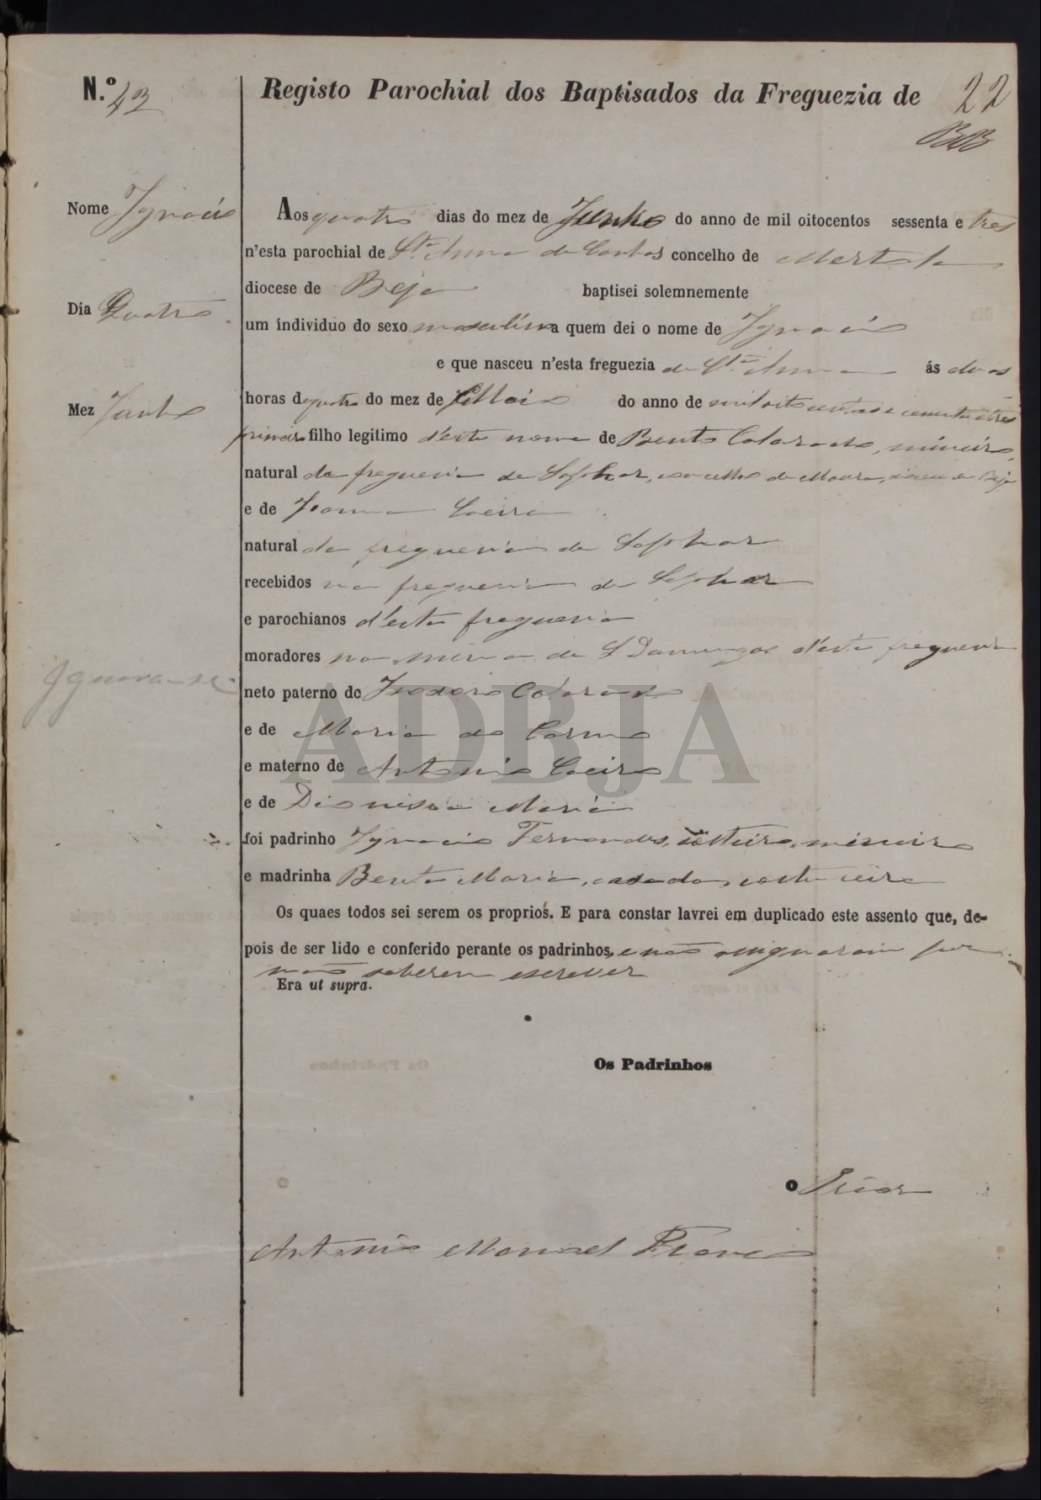 N.º 43
Registo Parochial dos Baptisados da Freguezia de
22
Nome Ignacio
Aos quatro dias do mez de Junho do anno de mil oitocentos sessenta e tres
n'esta parochial de Stª Anna de Cambas concelho de Mertola
Dia Quatro
diocese de Beja baptisei solemnemente
um individuo do sexo masculino a quem dei o nome de Ignacio
e que nasceu n'esta freguezia de Stª Anna ás duas
Mez Junho
horas d quatro do mez de Maio do anno de mil oito centos e secenta e tres
primeiro filho legitimo d'este nome de Bento Colorado, mineiro,
natural da freguezia de Safhar, concelho de Moura, diocese de Beja
e de Joanna Loeira
natural da freguezia de Safhar
recebidos na freguezia de Safhar
e parochianos d'esta freguezia
moradores na mina de S Domingos d'esta freguezia
Ignora-se
neto paterno do Izodoro Colorado
e de Maria do Carmo
e materno de Antonio Loeiro
e de Dionisia Maria
foi padrinho Ignacio Fernandes, solteiro, mineiro
e madrinha Benta Maria, casada, costureira
Os quaes todos sei serem os proprios. E para constar lavrei em duplicado este assento que, de-
pois de ser lido e conferido perante os padrinhos, e não asignaram por
não saberem escrever
Era ut supra.
Os Padrinhos
O Prior
Antonio Manoel Franco
ADBJA